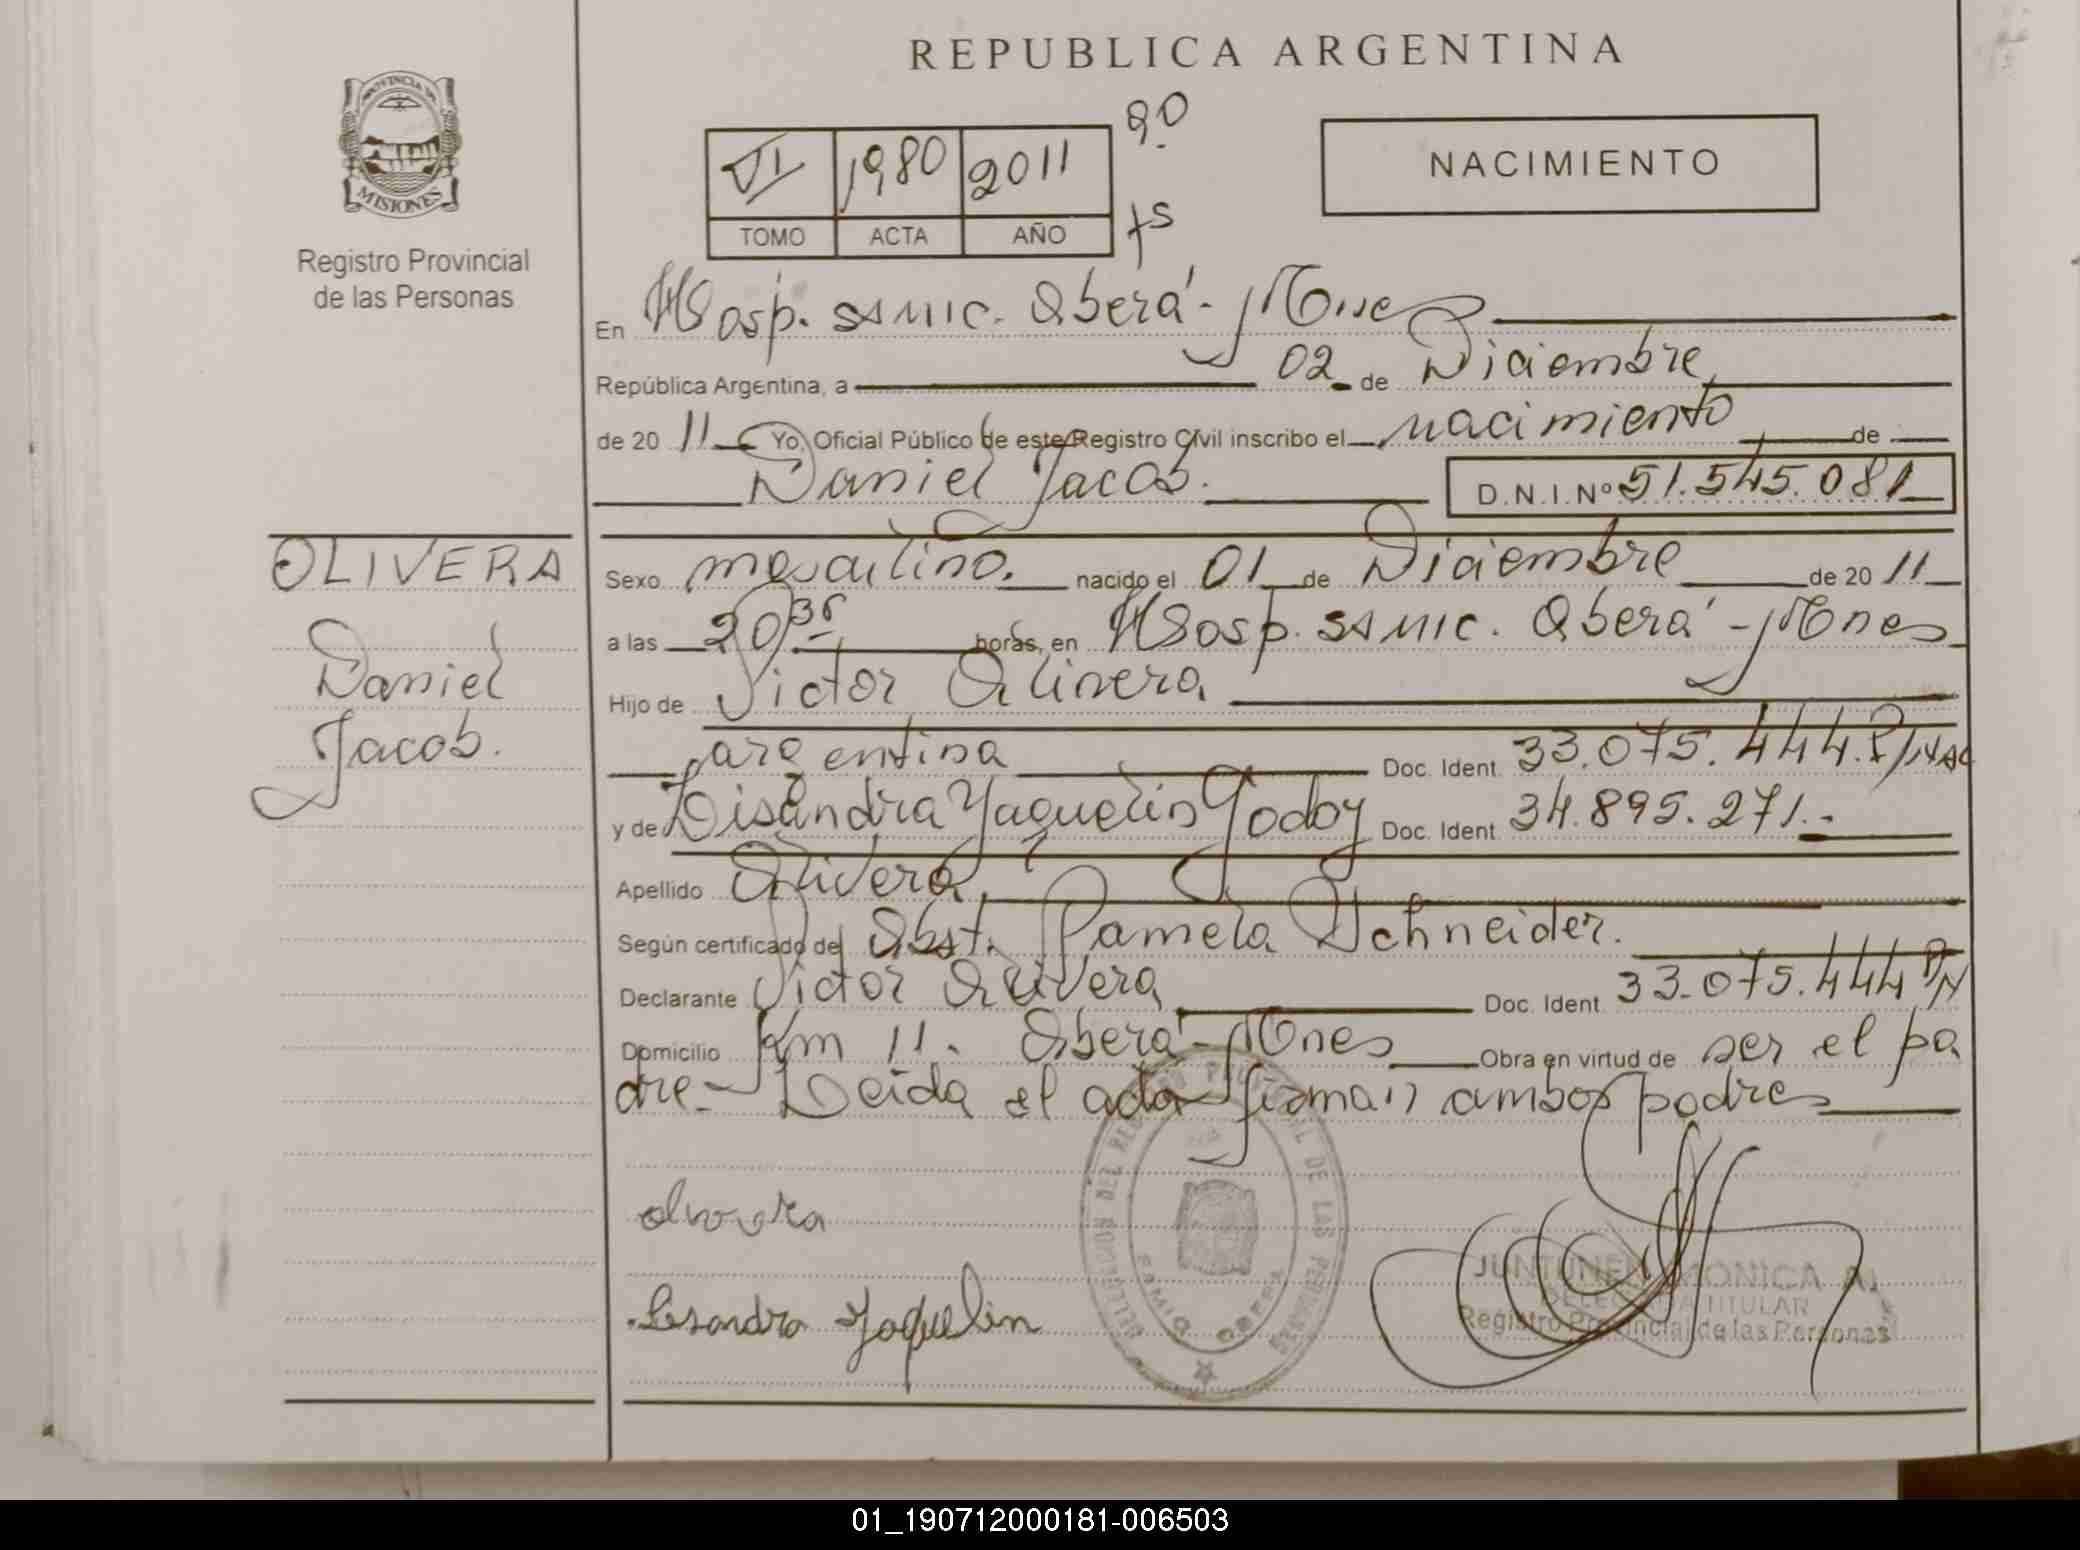 REPUBLICA ARGENTINA
PROVINCIA DE
MISIONES
Registro Provincial
de las Personas
VI 1980 2011
TOMO ACTA AÑO
NACIMIENTO
En Hosp. SAMIC. Oberá - Mnes
República Argentina, a 02 de Diciembre
de 2011 Yo, Oficial Público de este Registro Civil inscribo el nacimiento de
Daniel Jacob. D.N.I.Nº 51.545.081
OLIVERA
Daniel
Jacob.
Sexo masculino. nacido el 01 de Diciembre de 2011
a las 20 36 horas, en Hosp. SAMIC. Oberá - Mnes
Hijo de Victor Olivera
argentina Doc. Ident. 33.075.444.
y de Lisandra Yaquelin Godoy Doc. Ident. 34.895.271.-
Apellido Olivera
Según certificado de Obst. Pamela Schneider.
Declarante Victor Olivera Doc. Ident. 33.075.444
Domicilio Km 11. Oberá - Mnes Obra en virtud de ser el pa
dre - Leida el acta firman ambos padres
olivera
Lisandra Yaquelin
JUNTUNEN MONICA
DELEGADA TITULAR
Registro Provincial de las Personas
01_190712000181-006503